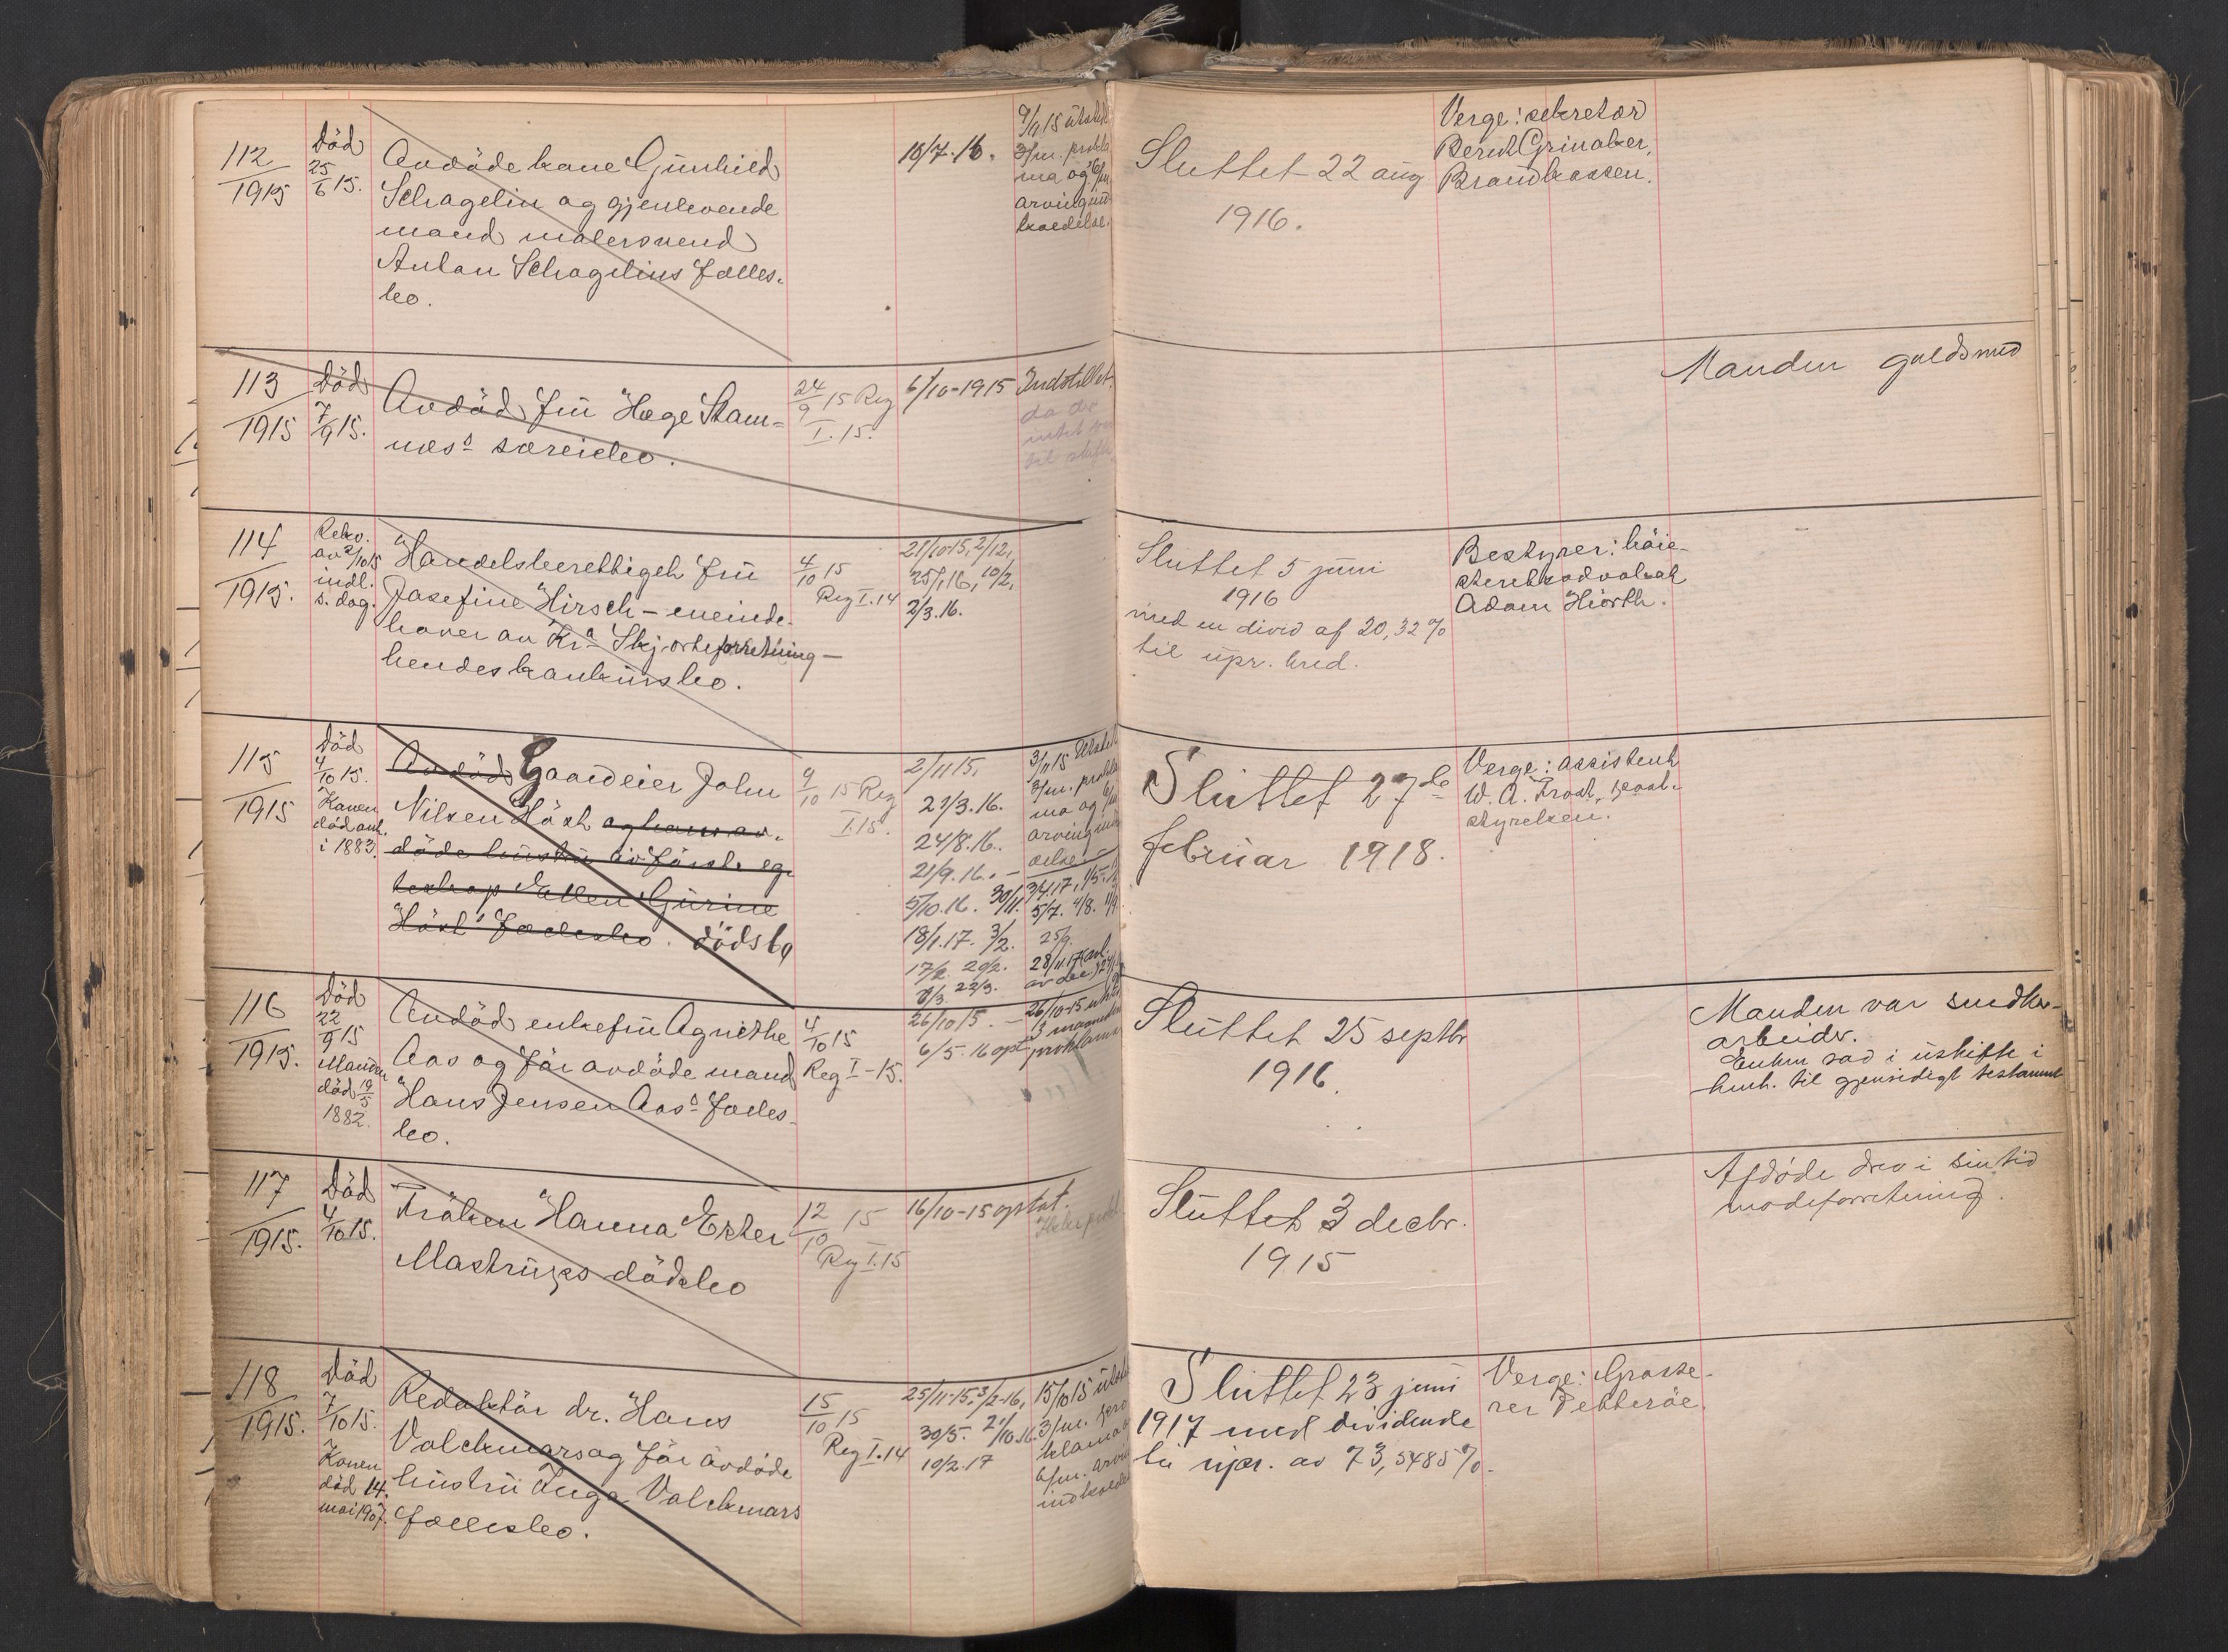 112
1915
Död
25/6 15.
Avdöde kone Gunhild
Schagelin og gjenlevende
mand malersvend
Anton Schagelins fælles-
bo.
18/7.16.
9/11 15 utstedt
3/m. prokla
ma og 6/m
arvingind
kaldelse.
Sluttet 22 aug
1916.
Verge: sekretær
Bernt Grinaker,
Brandkassen.
113
1915
Död
7/9 15.
Avdöd fru Hege Stam-
næs' særeiebo.
24/9 15 Reg
I. 15.
6/10-1915
Indstillet
da der
intet var
til skifte
Manden guldsmed
114
1915.
Rekv.
av 2/10 15
indl.
s. dag.
Handelsberettiget fru
Josefine Hirsch – eneinde-
haver av Kr.a Skjorteforretning –
hendes konkursbo.
4/10 15
Reg I. 14
21/10-15, 2/12,
25/1 16, 10/2,
2/3.16.
Sluttet 5 juni
1916
med en divid af 20,32 %
til upr. kred.
Bestyrer: höie-
steretsadvokat
Adam Hiorth.
115
1915
Död
4/10 15.
Konen
död ant.
i 1883.
Avdöd Gaardeier John
Nilsen Höst og hans av-
döde hustru av förste eg-
teskap Ellen Gurine
Höst's fællesbo. dödsbo
9/10 15 Reg
I. 15.
2/11 15,
21/3.16.
24/8.16.
21/9.16. –
5/10.16. 30/11.
18/1.17. 3/2.
17/2. 20/2.
8/3. 22/3.
3/11 15 Utstedt
3/m. prokla
ma og 6/m
arvingind
delse
3/4.17, 1/5.
5/7. 4/8.
25/9.
28/11 17
Sluttet 27de
februar 1918.
Verge: assistent
W. A. Frost, post-
styrelsen.
116
1915.
Död
22/9 15
Manden
död 19/5
1882.
Avdöd enkefru Agnethe
Aas og för avdöde mand
Hans Jensen Aas' fælles-
bo.
4/10 15
Reg I-15.
26/10 15. –
6/5.16 opt
26/10-15 utst
3 maaneders
proklama
Sluttet 25 septbr
1916.
Manden var snedker-
arbeider.
Enken sad i uskifte i
henh. til gjensidigt testament
117
1915.
Död
4/10 15.
Fröken Hanna Ester
Mastrups dödsbo
12/10 15
Reg I. 15
16/10-15 optat.
Sluttet 3 decbr.
1915
Afdöde drev i sin tid
modeforretning.
118
1915.
Död
7/10 15.
Konen
död 14.
mai 1907.
Redaktör dr. Hans
Volckmars og för avdöde
hustru Inga Volckmars
fællesbo.
15/10 15
Reg I. 14
25/11-15. 3/2-16,
30/5. 2/10 16.
10/2.17
15/10 15 utst
3/m. pro
klama og
6/m. arving
indkalde
Sluttet 23 juni
1917 med dividende
til upr. av 73,5485 %.
Verge: Grosse-
rer Petteröe.